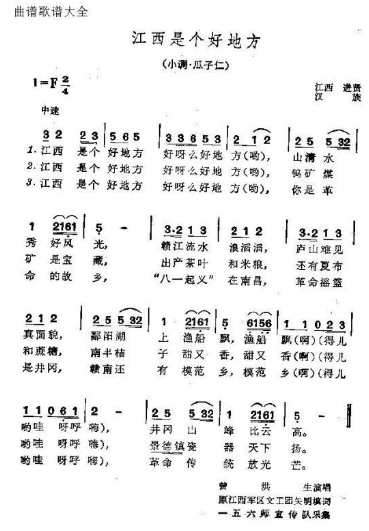 曲谱歌谱大全
江西是个好地方
(小调·瓜子仁)
1=F 2/4
江西 进贤
汉 族
中速
3 2 2 3 | 5 6 5 | 3·2 1 3 5 3 | 2 1 2 | 2 5 5 32 |
1. 江西 是个 好地方 好呀么好地 方(哟), 山清 水
2. 江西 是个 好地方 好呀么好地 方(哟), 钨矿 煤
3. 江西 是个 好地方 好呀么好地 方(哟), 你是 革
1 2161 | 5 - | 3·2 1 3 | 2 1 2 | 3·2 1 3 |
秀 好风 光, 赣江流水 浪滔滔, 庐山难见
矿 是宝 藏, 出产茶叶 和米粮, 还有夏布
命的故 乡, “八一起义” 在南昌, 革命摇篮
2 1 2 | 2 5 5 32 | 1 2161 | 5 6156 | 1 1 0 2 |
真面貌, 鄱阳湖 上 渔船 飘, 渔船 飘(啊)(得儿
和蔗糖, 南丰桔 子 甜又 香, 甜又 香(啊)(得儿
是井冈, 赣南还 有 模范 乡, 模范 乡(啊)(得儿
1 1 0 6 1 | 2 - | 2 5 5 32 | 1 2161 | 5 - |
哟哇 呀呼 嗨), 井冈 山 峰 比云 高。
哟哇 呀呼 嗨), 景德镇瓷 器 天下 扬。
哟哇 呀呼 嗨), 革命 传 统 放光 芒。
曾 洪 生演唱
原江西军区文工团矢明填词
一五六师宣传队采集